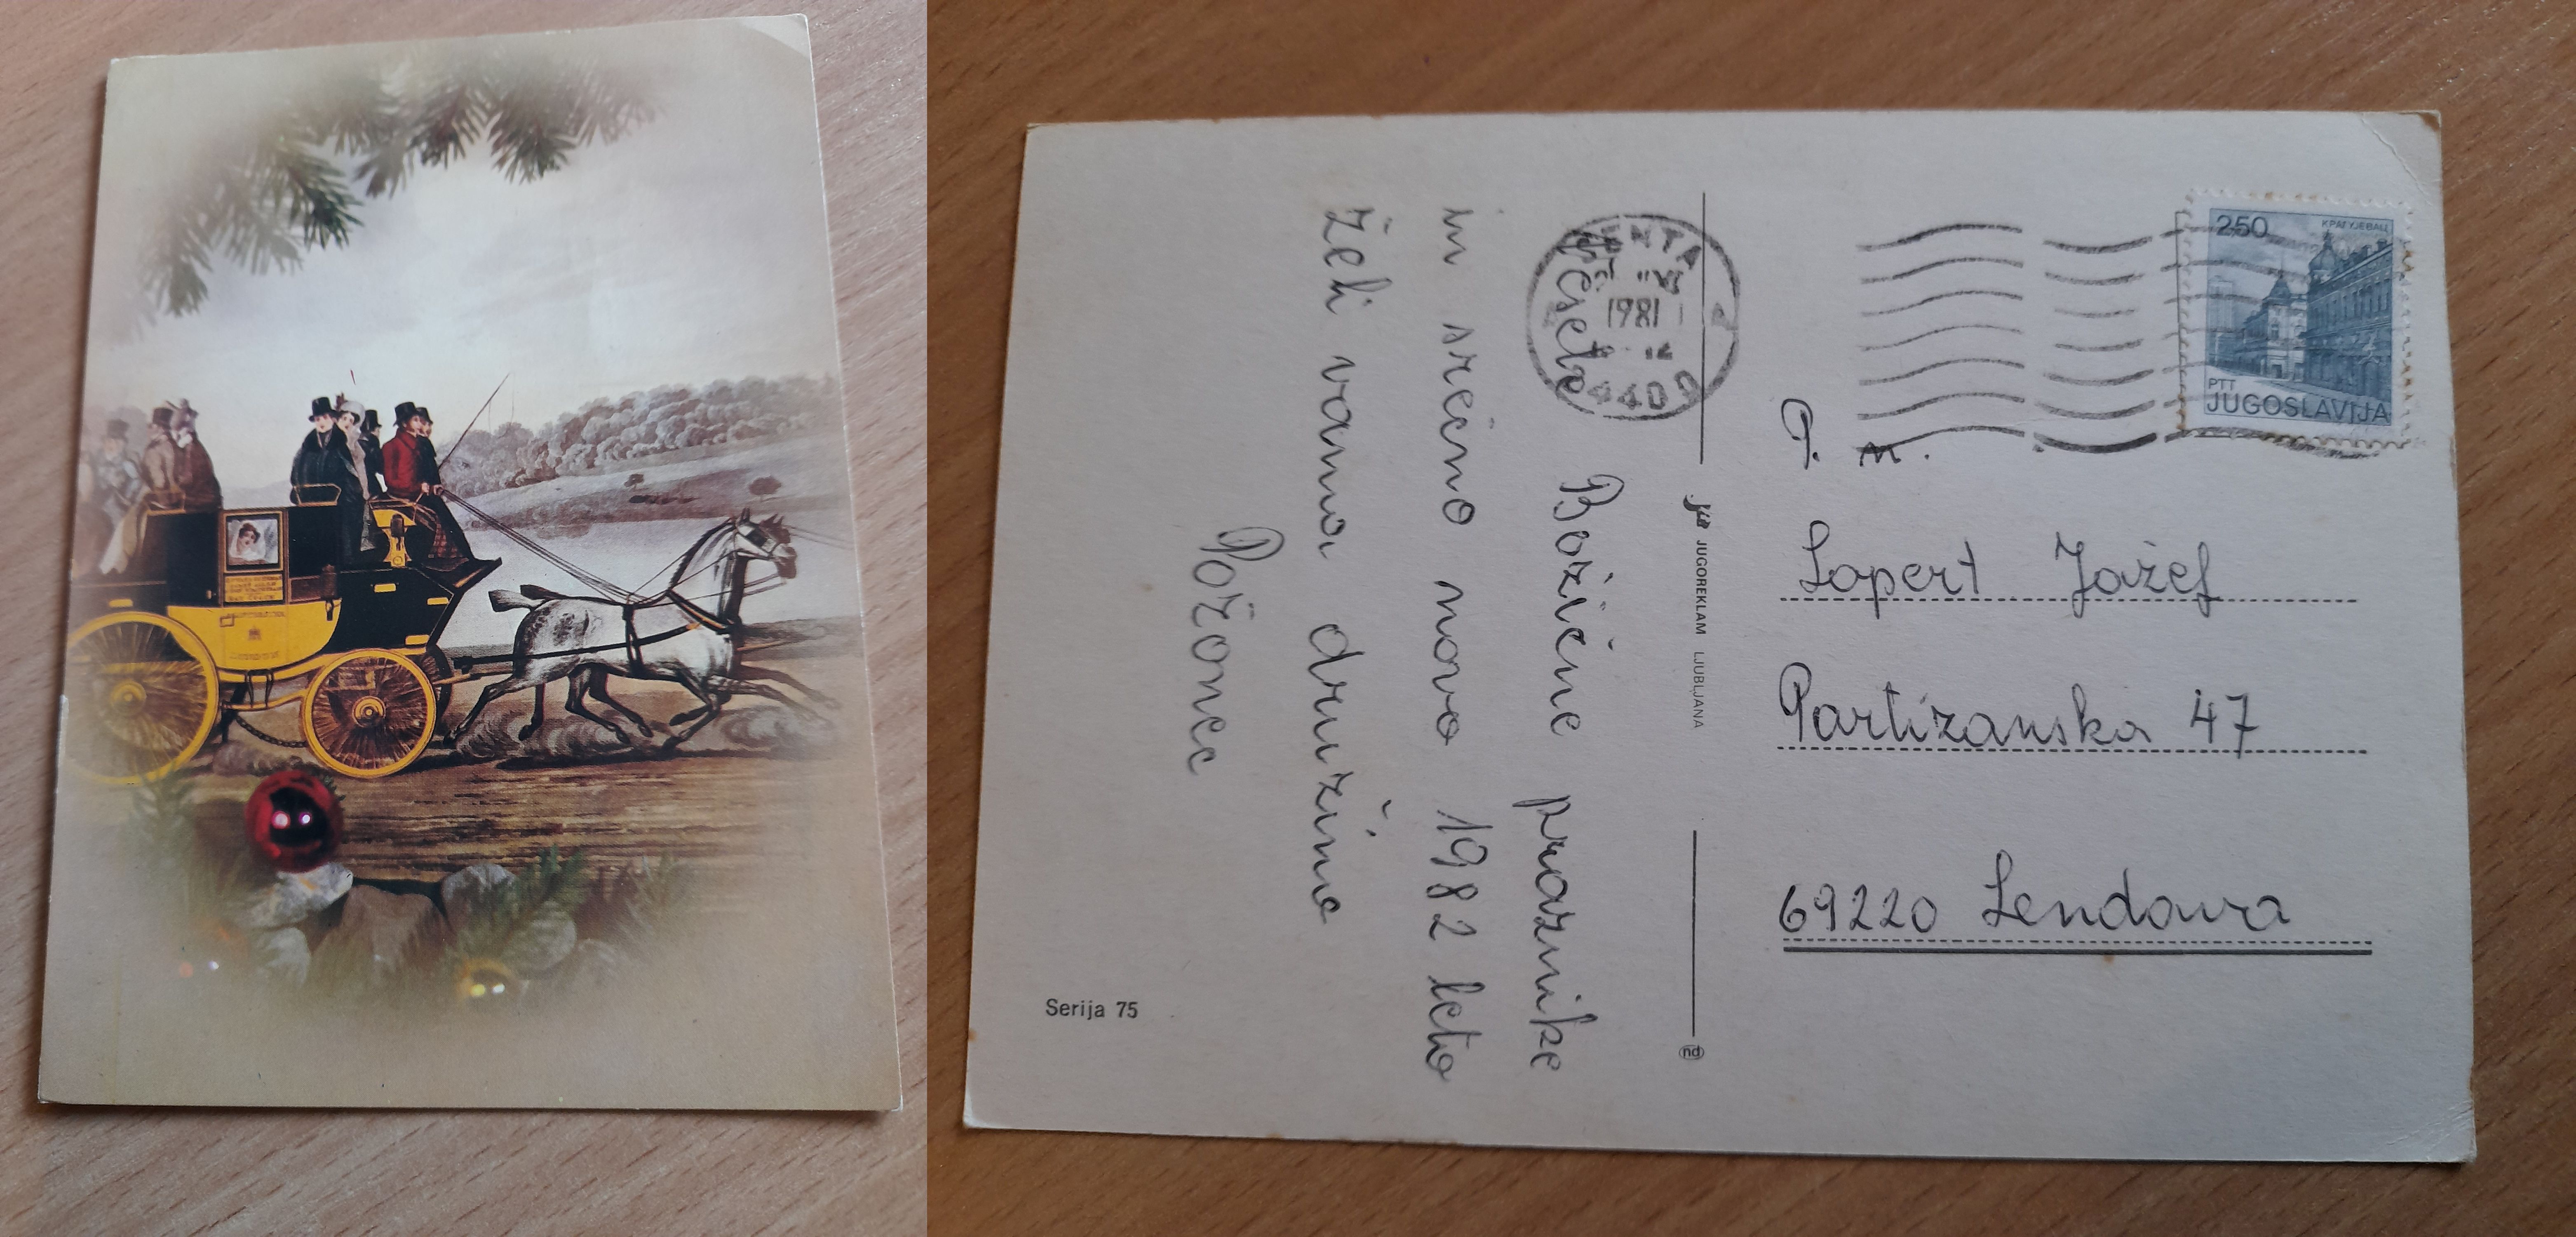 Vesele Božične praznike
in srečno novo 1982 leto
želi vama družina
Požonec
Serija 75
JUGOREKLAM LJUBLJANA
nd
1981
250
КРАГУЈЕВАЦ
PTT
JUGOSLAVIJA
P. n.
Sopert Jožef
Partizanska 47
69220 Lendava